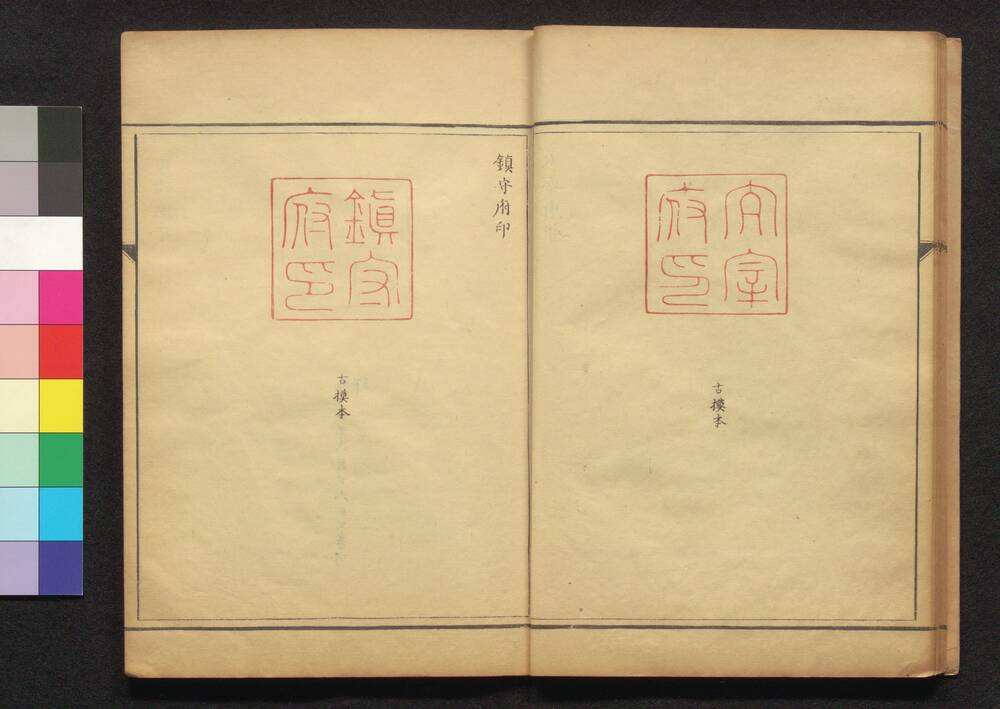 大宰
府印
古摸本
鎮守府印
鎮守
府印
古摸本